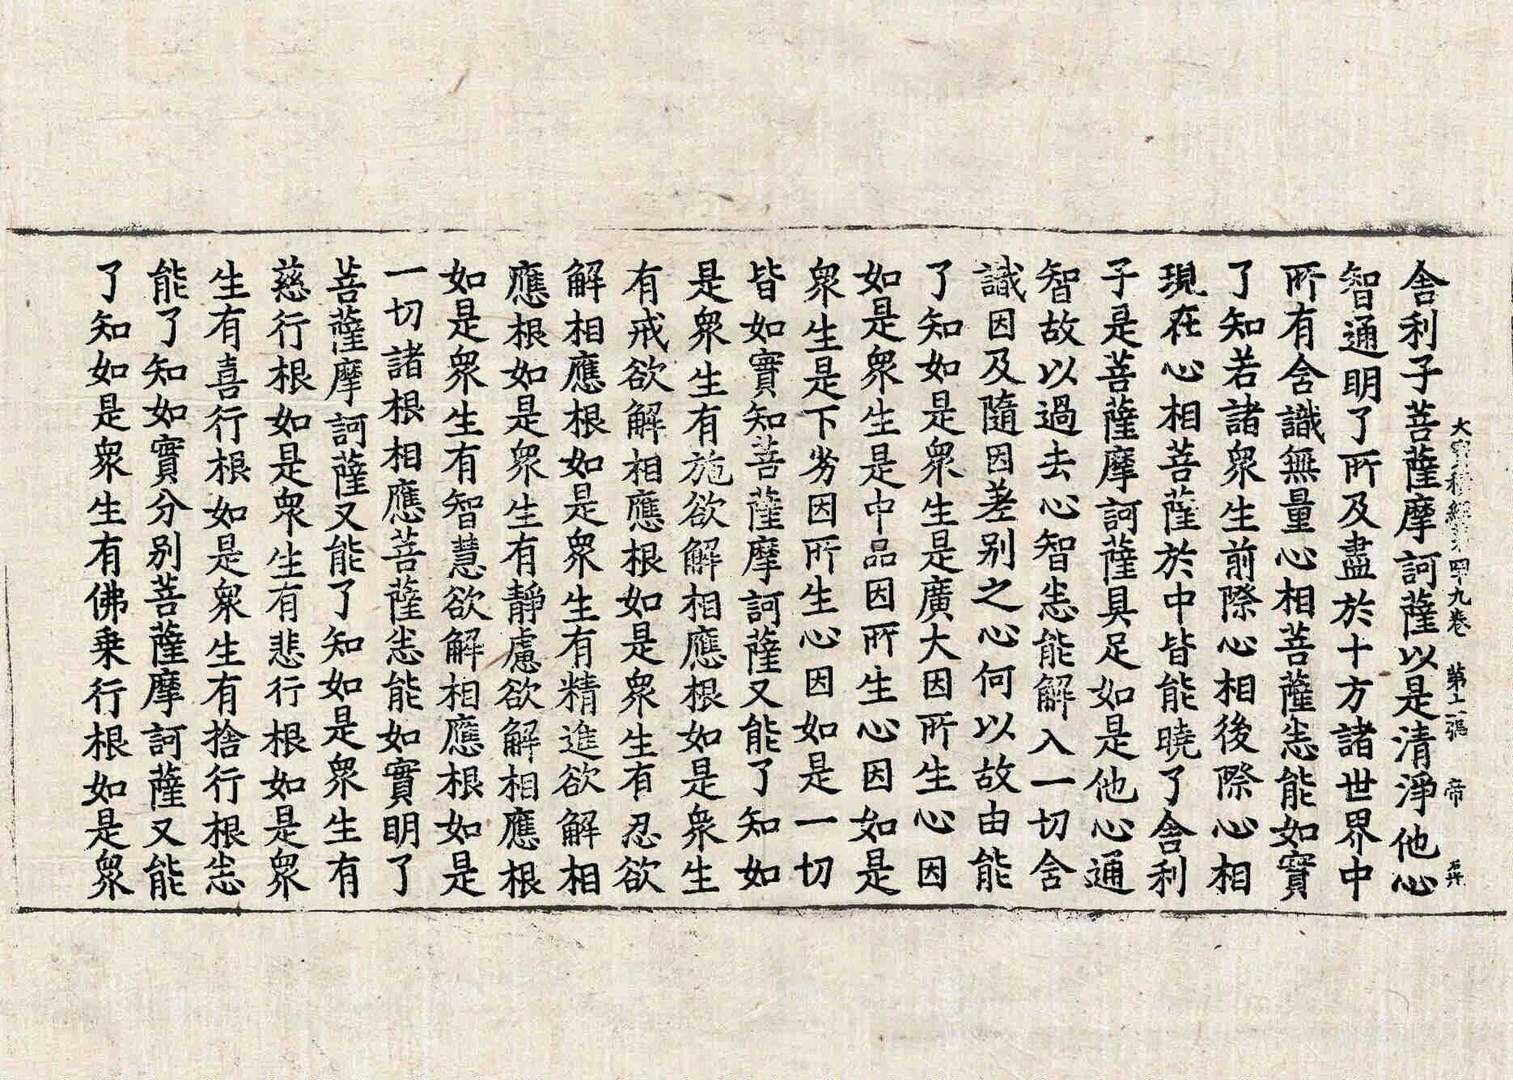 大寶積經第四十九卷 第 張 帝
舍利子菩薩摩訶薩以是清淨他心
智通明了所及盡於十方諸世界中
所有含識無量心相菩薩悉能如實
了知若諸衆生前際心相後際心相
現在心相菩薩於中皆能曉了舍利
子是菩薩摩訶薩具足如是他心通
智故以過去心智悉能解入一切含
識因及隨因差別之心何以故由能
了知如是衆生是廣大因所生心因
如是衆生是中品因所生心因如是
衆生是下劣因所生心因如是一切
皆如實知菩薩摩訶薩又能了知如
是衆生有施欲解相應根如是衆生
有戒欲解相應根如是衆生有忍欲
解相應根如是衆生有精進欲解相
應根如是衆生有靜慮欲解相應根
如是衆生有智慧欲解相應根如是
一切諸根相應菩薩悉能如實明了
菩薩摩訶薩又能了知如是衆生有
慈行根如是衆生有悲行根如是衆
生有喜行根如是衆生有捨行根悉
能了知如實分別菩薩摩訶薩又能
了知如是衆生有佛乗行根如是衆